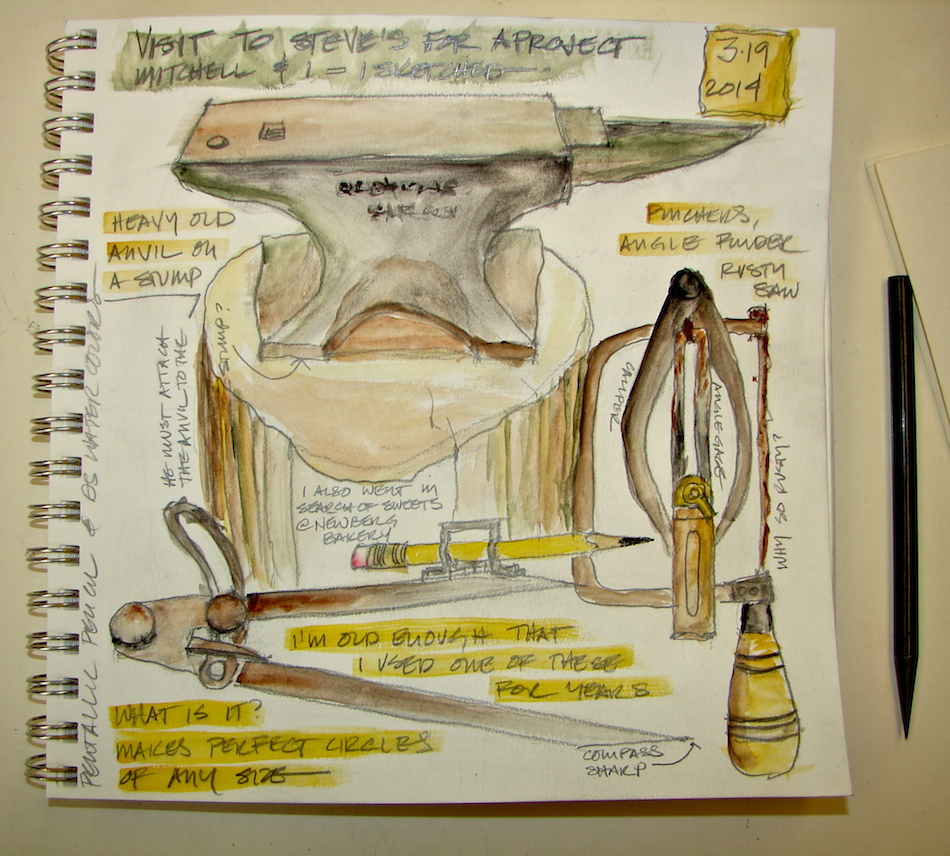 VISIT TO STEVE'S FOR A PROJECT
MITCHELL & I — I SKETCHED —
3.19
2014
HEAVY OLD
ANVIL ON
A STUMP
PINCHERS,
ANGLE FINDER
RUSTY
SAW
HE MUST ATTACH
THE ANVIL TO THE
STUMP?
CALIPER
ANGLE GAGE
WHY SO
I ALSO WENT IN
SEARCH OF SWEETS
@ NEWBERG
BAKERY
I'M OLD ENOUGH THAT
I USED ONE OF THESE
FOR YEARS
WHAT IS IT?
MAKES PERFECT CIRCLES
OF ANY SIZE —
COMPASS
SHARP
PENTALIC PENCIL & DS WATER COLORS